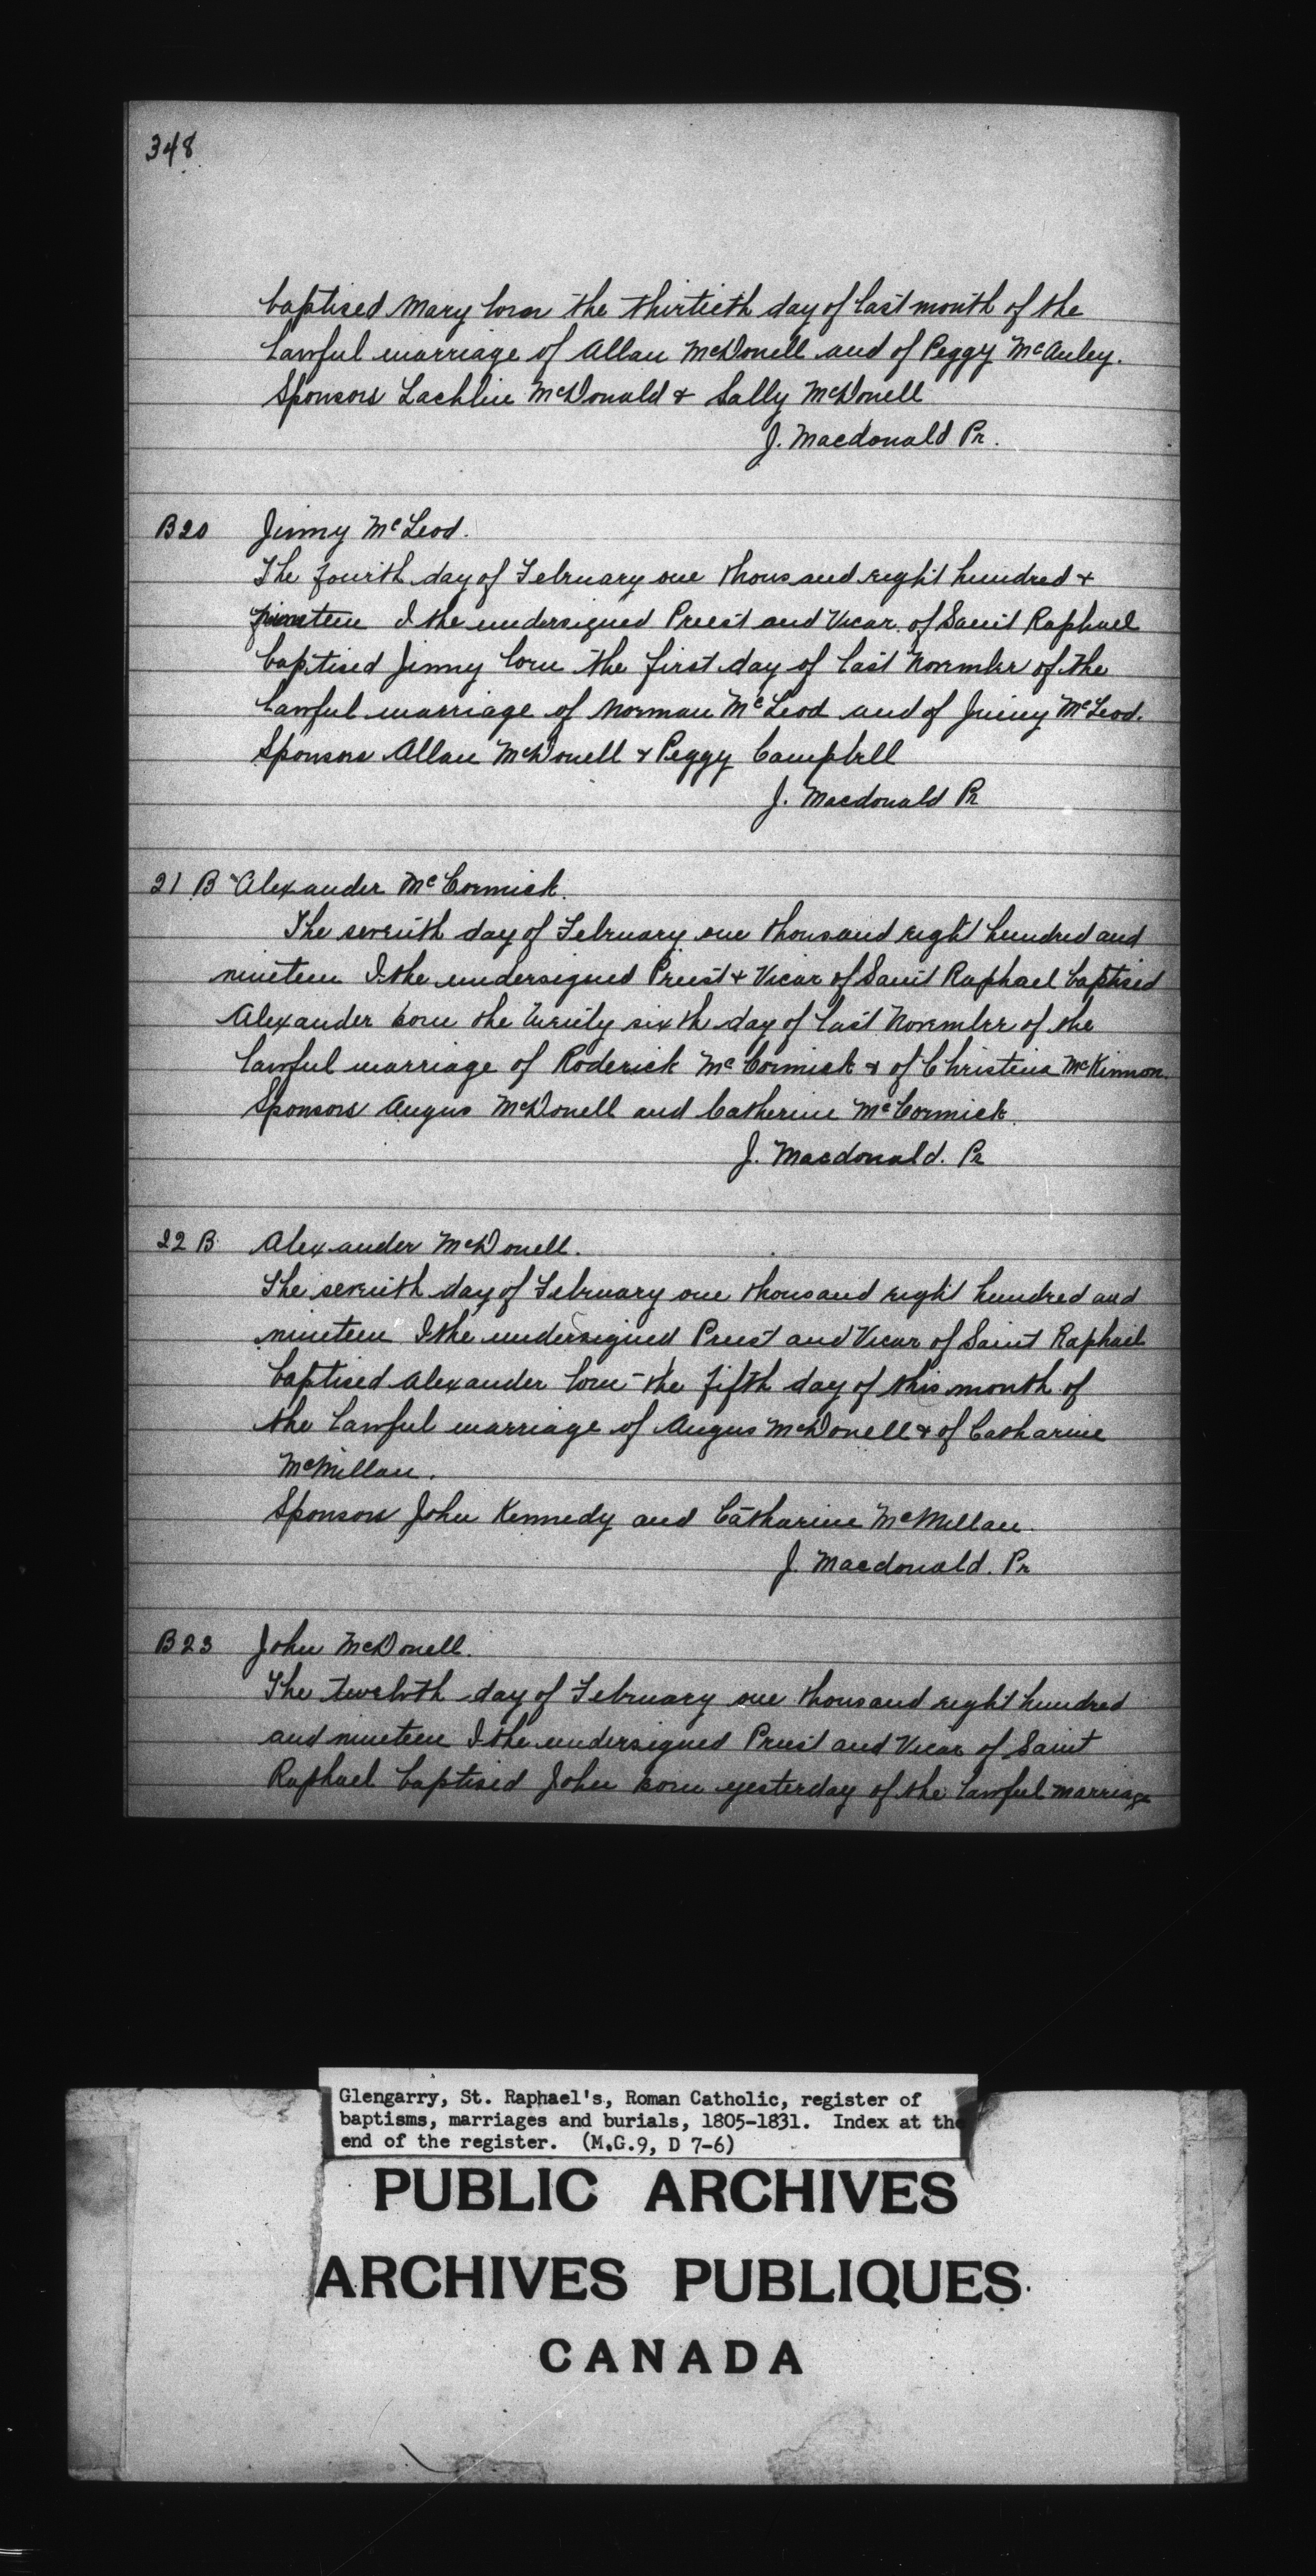 348
baptised Mary born the thirtieth day of last month of the
lawful marriage of Allan McDonell and of Peggy McAuley.
Sponsors Lachlin McDonald & Sally McDonell
J. Macdonald Pr.
B20 Jinny McLeod.
The fourth day of February one thousand eight hundred &
nineteen I the undersigned Priest and Vicar of Saint Raphael
baptised Jinny born the first day of last November of the
lawful marriage of Norman McLeod and of Jinny McLeod.
Sponsors Allan McDonell & Peggy Campbell
J. Macdonald Pr
21 B Alexander McCormick.
The seventh day of February one thousand eight hundred and
nineteen I the undersigned Priest & Vicar of Saint Raphael baptised
Alexander born the twenty sixth day of last November of the
lawful marriage of Roderick McCormick & of Christina McKinnon.
Sponsors Angus McDonell and Catherine McCormick.
J. Macdonald. Pr
22 B Alexander McDonell.
The seventh day of February one thousand eight hundred and
nineteen I the undersigned Priest and Vicar of Saint Raphael
baptised Alexander born the fifth day of this month of
the lawful marriage of Angus McDonell & of Catharine
McMillan.
Sponsors John Kennedy and Catharine McMillan.
J. Macdonald. Pr
B23 John McDonell.
The twelvth day of February one thousand eight hundred
and nineteen I the undersigned Priest and Vicar of Saint
Raphael baptised John born yesterday of the lawful marriage
Glengarry, St. Raphael's, Roman Catholic, register of
baptisms, marriages and burials, 1805-1831. Index at the
end of the register. (M.G.9, D 7-6)
PUBLIC ARCHIVES
ARCHIVES PUBLIQUES
CANADA